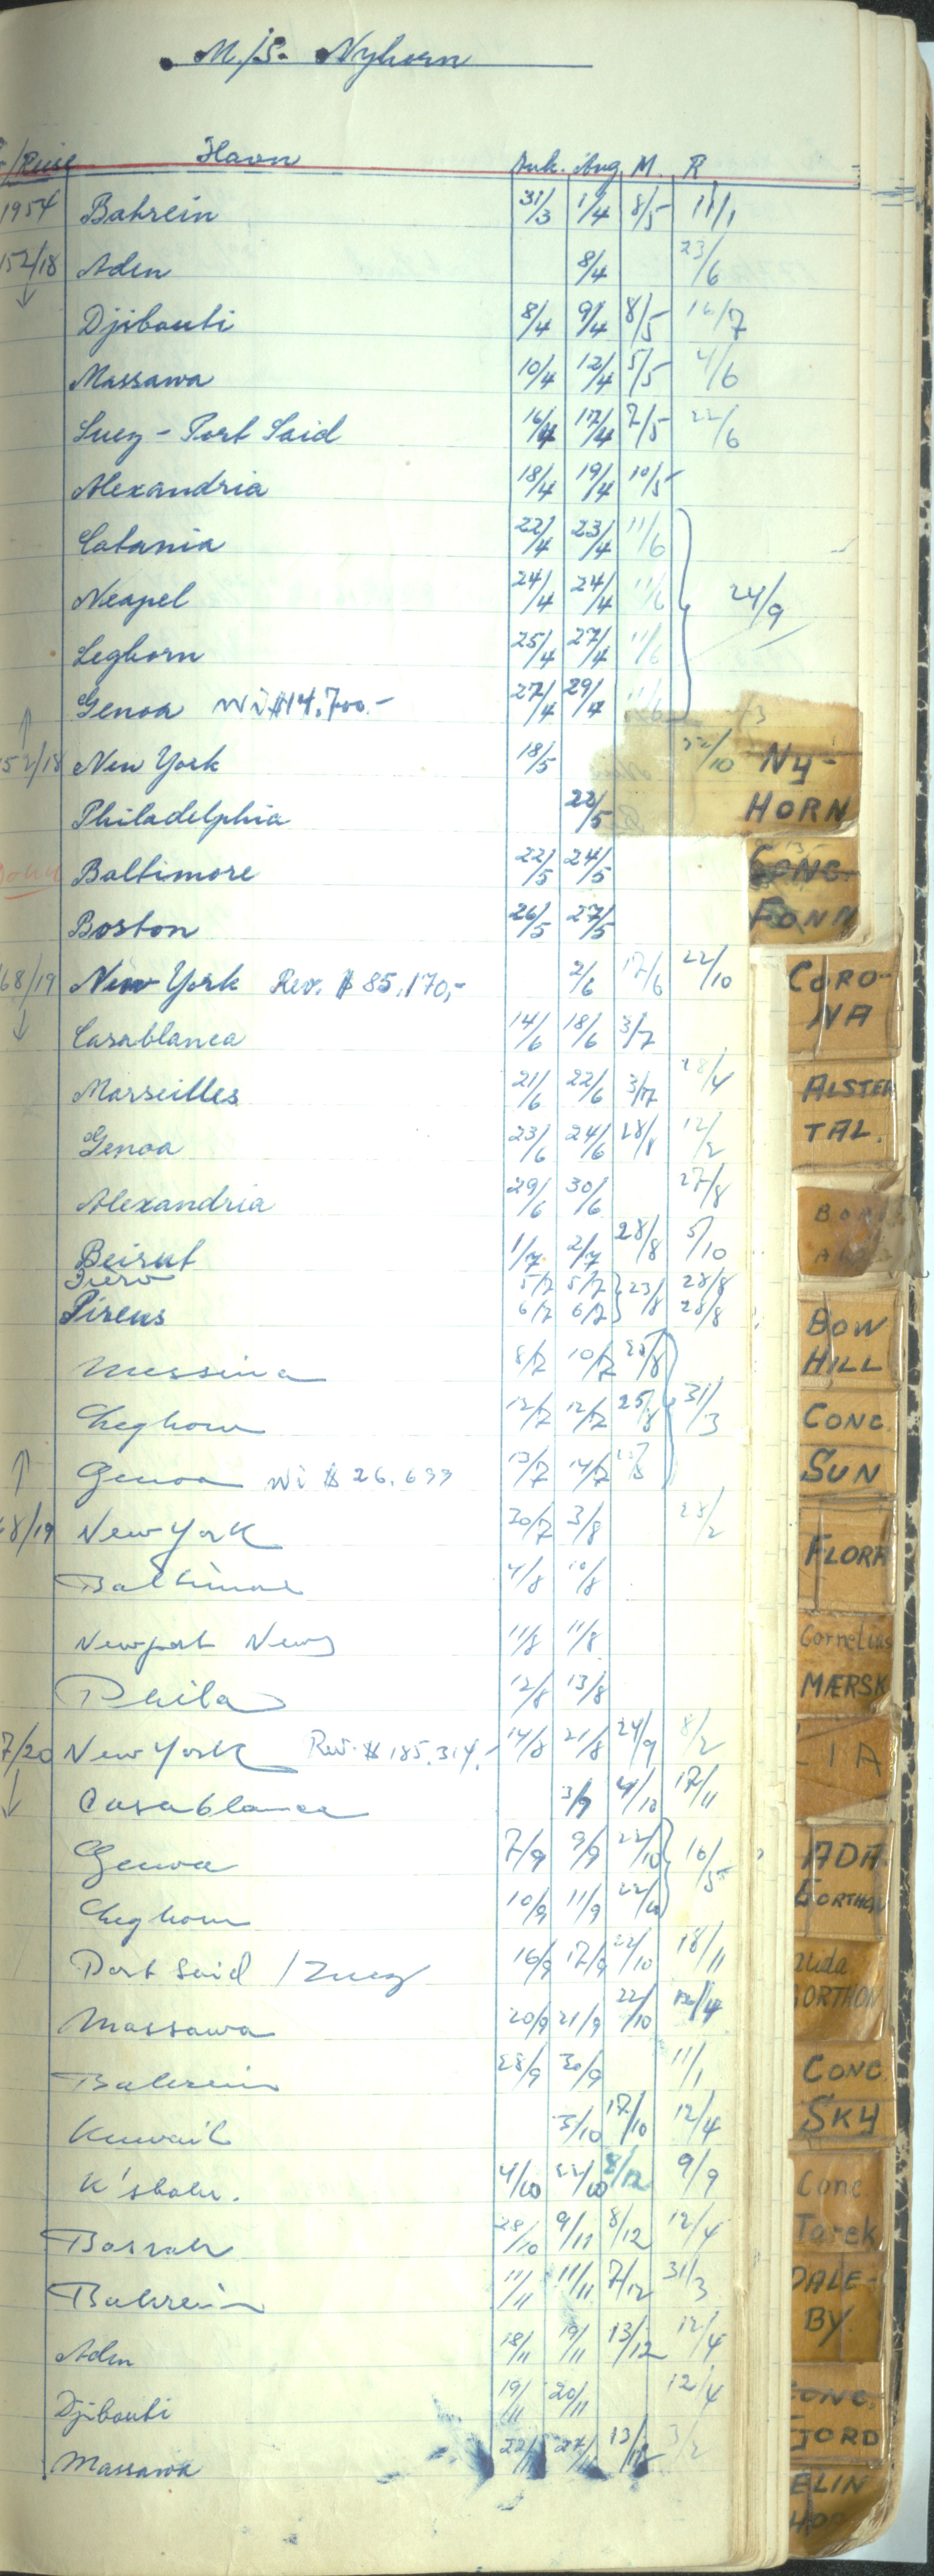 M/S. Nyhorn
/Reise Havn Ank. Avg. M. R.
1954 Bahrein 31/3 1/4 8/5 11/1
152/18 Aden 8/4 23/6
↓
Djibouti 8/4 9/4 8/5 16/7
Massawa 10/4 12/4 5/5 4/6
Suez - Port Said 16/4 17/4 7/5 22/6
Alexandria 18/4 19/4 10/5
Catania 22/4 23/4 11/6
Neapel 24/4 24/4 11/6 24/9
Leghorn 25/4 27/4 11/6
Genoa Wi $14.700.- 27/4 29/4 11/6
↑
52/18 New York 18/5 22/10
Philadelphia 22/5
Baltimore 22/5 24/5
Boston 26/5 27/5
68/19 New York Rev. $ 85.170,- 2/6 17/6 22/10
↓
Casablanca 14/6 18/6 3/7
Marseilles 21/6 22/6 3/7 28/4
Genoa 23/6 24/6 28/8 12/2
Alexandria 29/6 30/6 27/8
Beirut 1/7 2/7 28/8 5/10
5/7 5/7 23/8 28/8
Pireus 6/7 6/7 28/8
Messina 8/7 10/7 25/8
Leghorn 12/7 12/7 25/8 31/3
↑
Genoa Wi $ 26.699 13/7 14/7
68/19 New York 30/7 3/8 28/2
Baltimore 4/8 10/8
Newport News 11/8 11/8
Phila 12/8 13/8
7/20 New York Rev. $ 185.314.- 14/8 21/8 24/9 8/2
↓
Casablanca 3/9 4/10 17/11
Genoa 7/9 9/9 22/10 16/5
Leghorn 10/9 11/9 22/10
Port Said / Suez 16/9 17/9 22/10 18/11
Massawa 20/9 21/9 22/10
Bahrein 28/9 30/9 11/1
Kuwait 3/10 17/10 12/4
K'shahr. 4/10 22/10 8/12 9/9
Basrah 28/10 9/11 8/12 12/4
Bahrein 11/11 11/11 7/12 31/3
Aden 18/11 19/11 13/12 12/4
Djibouti 19/11 20/11 12/4
Massawa 3/2
NY-
HORN
CONC.
FONN
CORO-
NA
ALSTER
TAL.
BOW
HILL
CONC.
SUN
FLORA
Cornelius
MÆRSK
ADA
GORTHON
GORTHON
CONC
SKY
Conc
Tarek
DALE-
BY.
CONC.
FJORD
ELIN